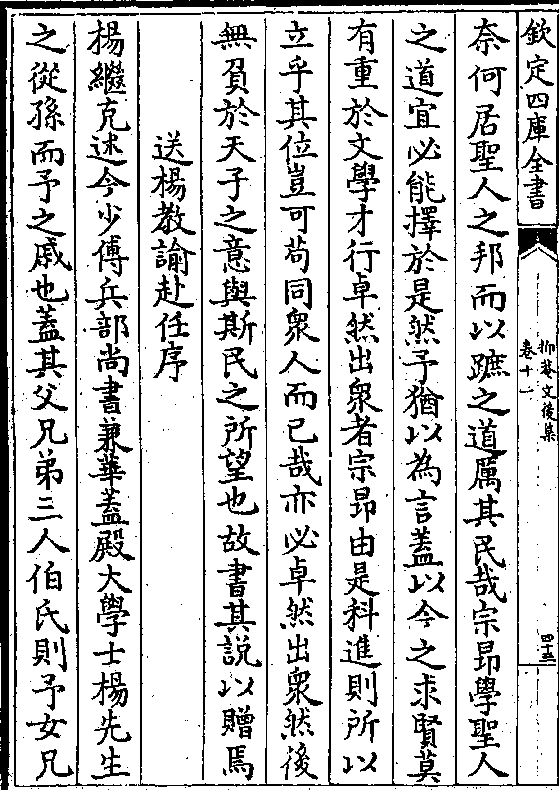 欽定四庫全書
抑菴文後集
卷十一
四十五
奈何居聖人之邦而以蹠之道厲其民哉宗昂學聖人
之道宜必能擇於是然予猶以為言蓋以今之求賢莫
有重於文學才行卓然出衆者宗昂由是科進則所以
立乎其位豈可苟同衆人而已哉亦必卓然出衆然後
無負於天子之意與斯民之所望也故書其說以贈焉
送楊教諭赴任序
楊繼克述今少傅兵部尚書兼華蓋殿大學士楊先生
之從孫而予之戚也蓋其父兄弟三人伯氏則予女兄